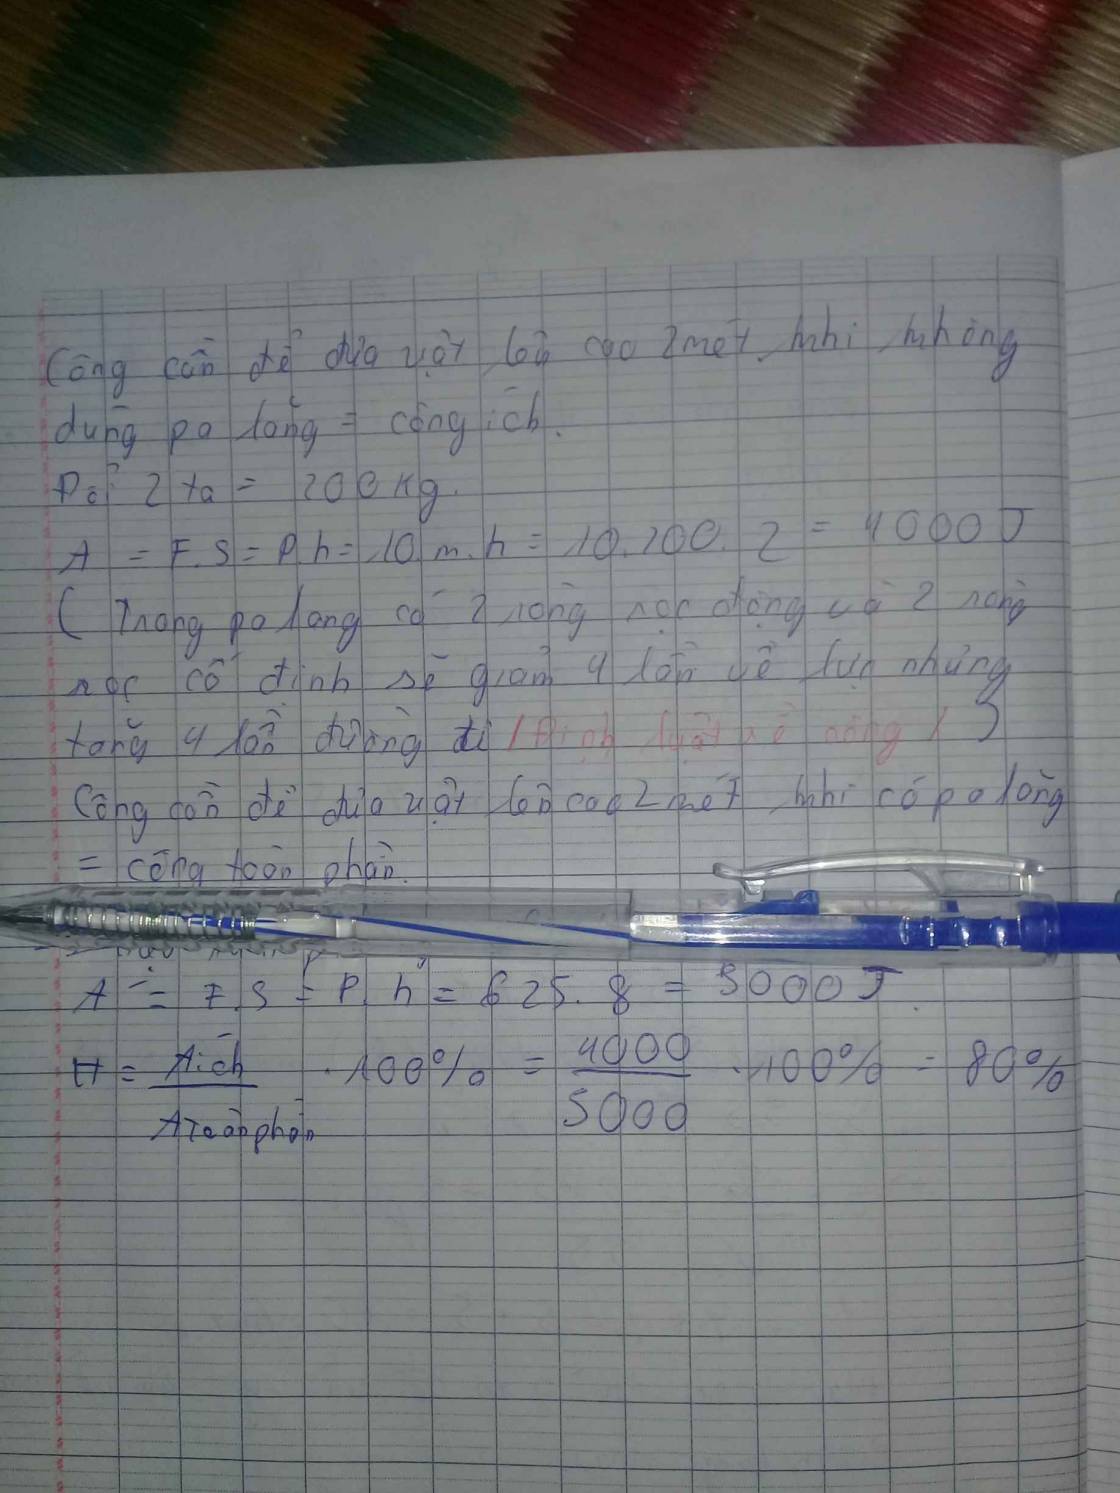 Công cần để đưa vật lên cao 2 mét khi không
dùng pa lăng = công ích.
Đổi 2 tạ = 200 kg.
A = F.S = P.h = 10.m.h = 10.200.2 = 4000J
( Trong pa lăng có 2 ròng rọc động và 2 ròng
rọc cố định sẽ giảm 4 lần về lực nhưng
tăng 4 lần đường đi (Định luật về công) )
Công cần để đưa vật lên cao 2 mét khi có pa lăng
= công toàn phần.
A = F.S = P.h = 625.8 = 5000J
H = Aích / Atoànphần . 100% = 4000 / 5000 . 100% = 80%